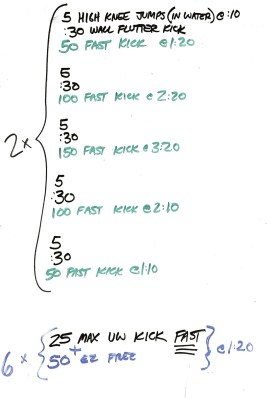 5 HIGH KNEE JUMPS (IN WATER) @ :10
:30 WALL FLUTTER KICK
50 FAST KICK @ 1:20
5
:30
100 FAST KICK @ 2:20
2x
5
:30
150 FAST KICK @ 3:20
5
:30
100 FAST KICK @ 2:10
5
:30
50 FAST KICK @ 1:10
6 x { 25 MAX UW KICK FAST } @ 1:20
50+ EZ FREE